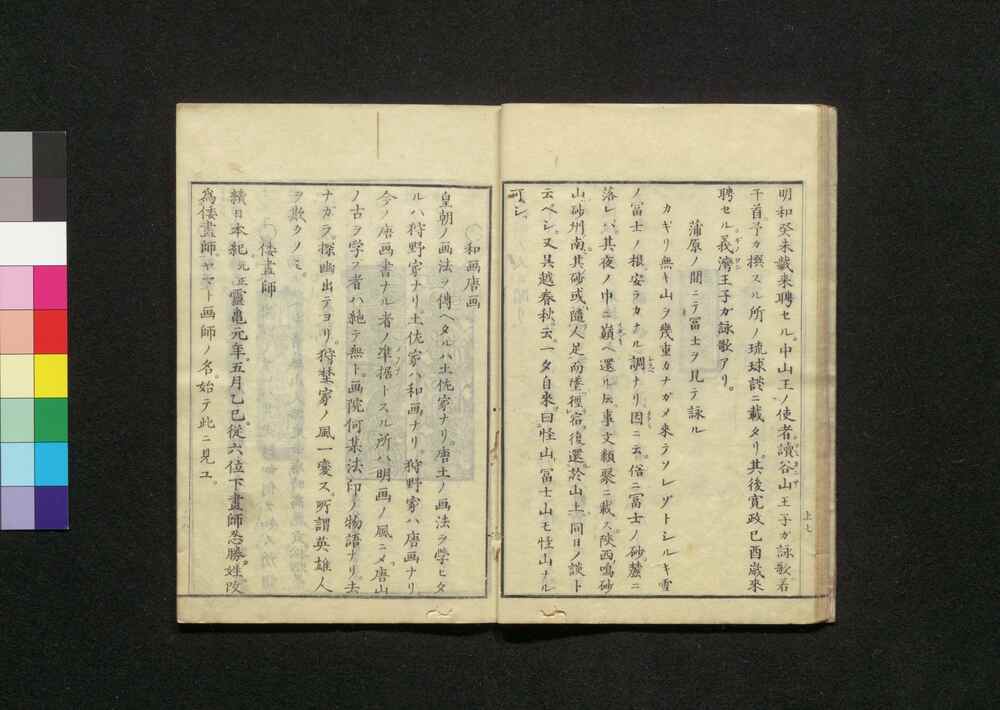 明和癸未載来聘セル中山王ノ使者讀谷山王子ガ詠歌若
干首予カ撰スル所ノ琉球談ニ載タリ其後寛政己酉歳来
聘セル義湾王子ガ詠歌アリ
蒲原ノ間ニテ冨士ヲ見テ詠ル
カギリ無キ山ヲ幾重カナガメ来テソレゾトシルキ雪
ノ冨士ノ根安ラカナル調ナリ因ニ云俗ニ冨士ノ砂麓ニ
落レバ其夜ノ中ニ巓ヘ還ル伝事文類聚ニ載ス陝西鳴砂
山砂州南其砂或隨人足而墜徑宿後還於山上同日ノ談ト
云ベシ又呉越春秋云一夕自来曰怪山冨士山モ怪山ナル
可シ
上七
和画唐画
皇朝ノ画法ヲ傳ヘタルハ土佐家ナリ唐土ノ画法ヲ学ヒタ
ルハ狩野家ナリ土佐家ハ和画ナリ狩野家ハ唐画ナリ
今ノ唐画書ナル者ノ準据トスル所ハ明画ノ風ニメ唐山
ノ古ヲ学ヲ者ハ絶テ無ト画院何某法印ノ物語ナリ去
ナガラ探幽出テヨリ狩埜家ノ風一変ス所謂英雄人
ヲ欺クノミ
倭畫師
續日本紀元正霊亀元年五月乙巳従六位下畫師忍勝姓改
為倭畫師ヤマト画師ノ名始テ此ニ見ユ